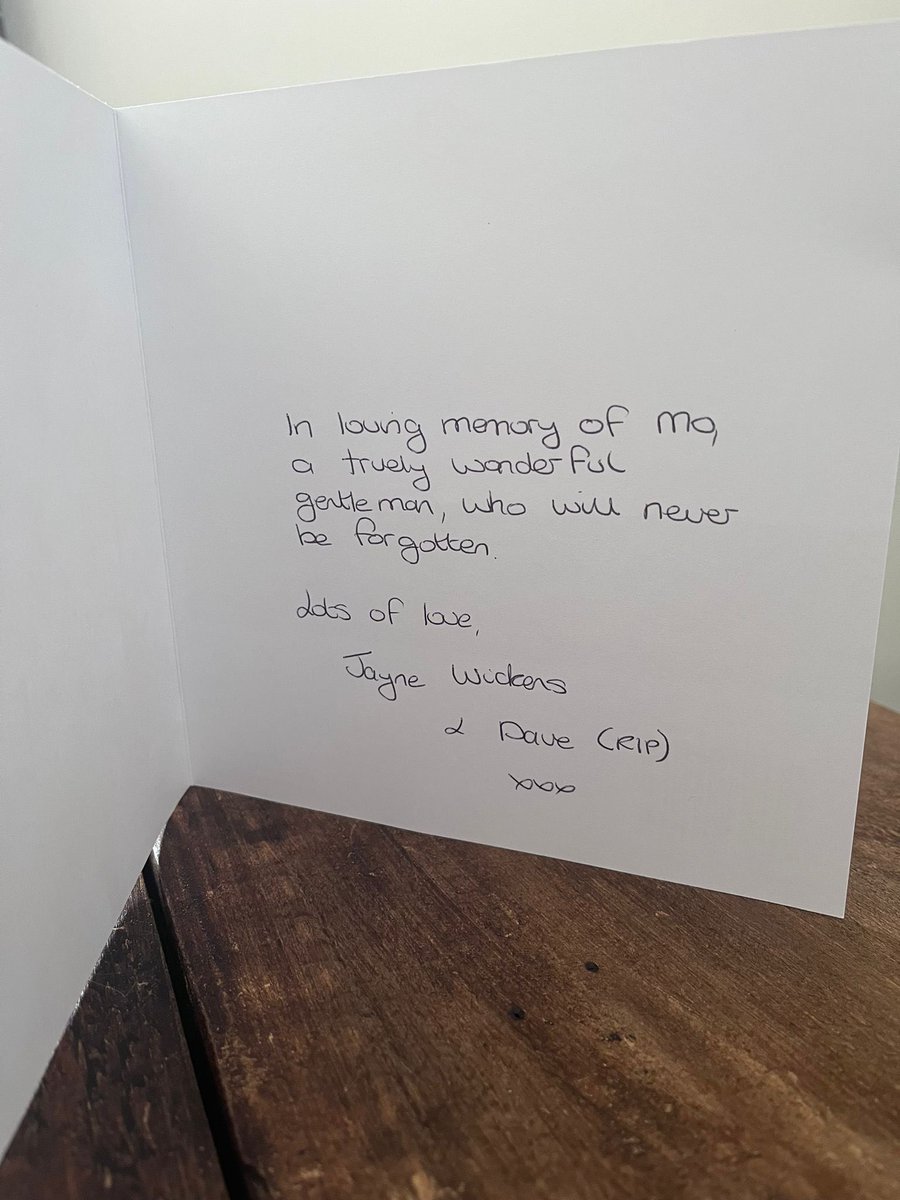 In loving memory of Mo,
a truely wonderful
gentleman, who will never
be forgotten.
Lots of love,
Jayne Wickens
& Dave (RIP)
xxx